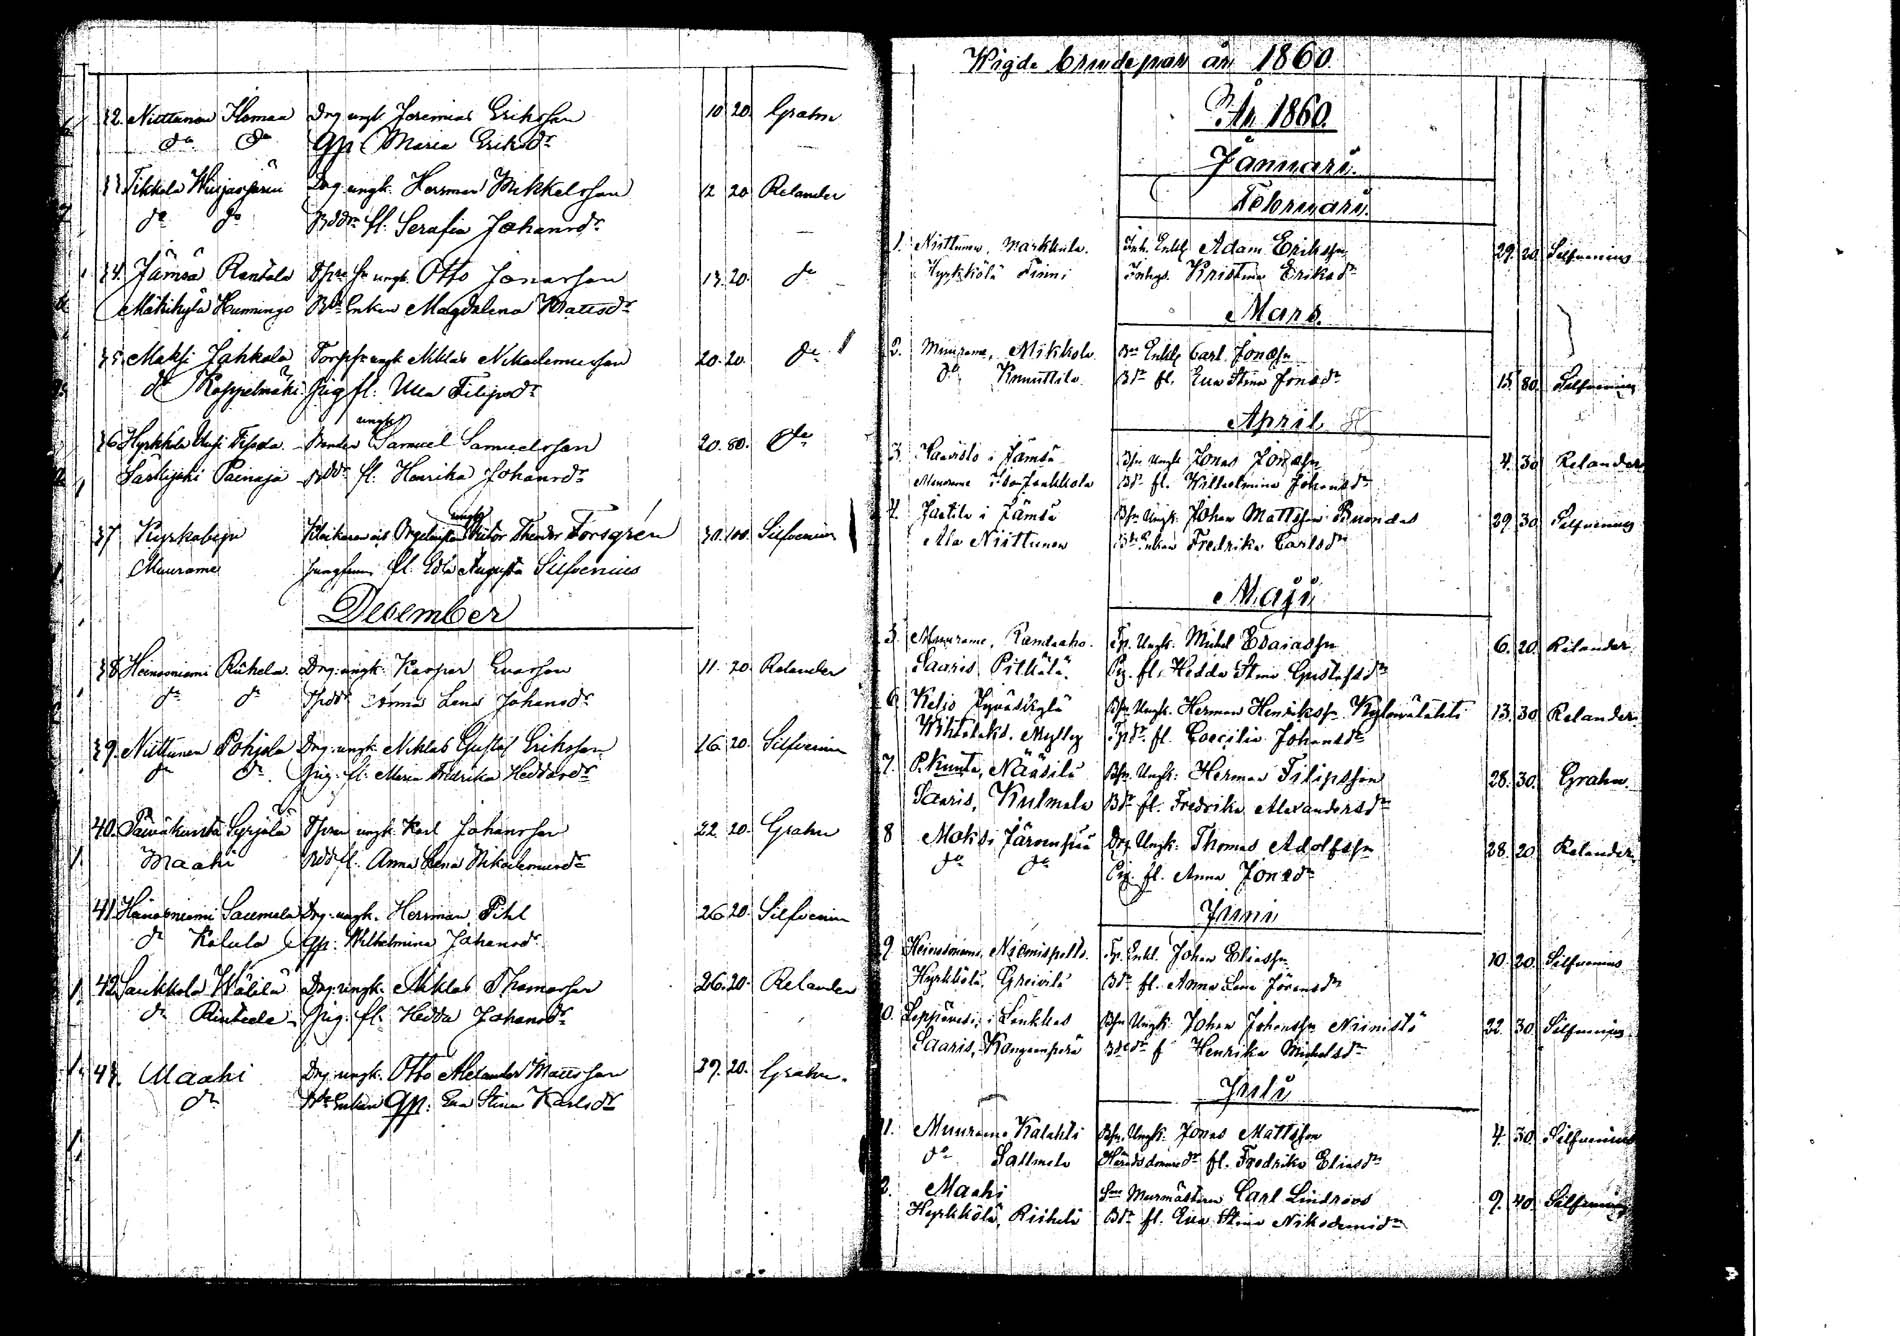 32. Niittunen Homaa Drg. ungk. Jeremias Eriksson 10 20. Grahn
do do Gp. Maria Eriksdr
33 Tikkala Drg. ungk. Herrman Mikkelsson 12 20 Relander
do do fl. Serafia Johansdr
34. Jämsä Rantala ungk. Otto Jonasson 13. 20. do
Mäkikylä Hummingo Enkan Magdalena Mattsdr
35. Maksi Jahkola ungk. Niklas Nikodemusson 20. 20. do
do Koppelmäki Pig. fl. Ulla Filipsdr
36 Hyrkkölä ungk. Samuel Samuelsson 20. 80. do
Särkijoki Painaja fl. Henrika Johansdr
37 Kyrkobyn ungk. Victor Theodor Forsgrén 30. 100. Silfvenius
Muurame fl. Edla Augusta Silfvenius
December
38 Heinosniemi Riihela Drg. ungk. Kasper Evasson 11. 20. Relander
do do Anna Lena Johansdr
39. Niittunen Pohjola Drg. ungk. Niklas Gustaf Eriksson 16. 20. Silfvenius
do do Pig. fl. Maria Fredrika Heddasdr
40. Päiväkunta Syrjälä ungk. Karl Johansson 22. 20. Grahn
Maahi fl. Anna Lena Nikodemusdr
41. Heinosniemi Saumala Drg. ungk. Herrman Pihl 26. 20. Silfvenius
do Kalula Gp. Wilhelmina Johansdr
42. Saukkola Wälilä Drg. ungk. Niklas Thomasson 26. 20. Relander
do Rinteela Pig. fl. Hedda Johansdr
43. Maahi Drg. ungk. Otto Alexander Mattsson 29. 20. Grahn.
do Enkan Gp. Eva Stina Karlsdr
Wigde brudepar år 1860
År 1860.
Januari.
Februari.
1. Niittunen, Markkula. Inh. Enkl. Adam Eriksson 29. 20. Silfvenius
Hyrkkölä Finni Inhys. Kristina Eriksdr
Mars.
2. Muurame, Mikkola Bn Enkl. Carl Jonasson
do, Knuuttila Bdr fl. Eva Stina Jonasdr 15 80. Silfvenius
April
3. Haavisto i Jämsä Bsn Ungk. Jonas Jonasson 4. 30 Relander
Muurame Iso Jaakkola Bdr fl. Wilhelmina Johansdr
4. Jaatila i Jämsä Bsn Ungk. Johan Mattsson 29. 30. Silfvenius
Ala Niittunen Enkan Fredrika Carlsdr
Maji
5. Muurame, Randaaho. Tp. Ungk. Mikel Esaiasson 6. 20. Relander
Saaris, Pitkälä. Pig. fl. Hedda Stina Gustafsdr
6. Keljo Jyväskylä Bsn Ungk. Herman Henriksson 13. 30. Relander
Wihtalaks. Mylly fl. Coecilia Johansdr
7. P.kunta, Nääsilä Bsn. Ungk. Herman Filipsson 28. 30. Grahn.
Saaris, Kulmala Bdr fl. Fredrika Alexandersdr
8 Maksi Järvenpää Drg. Ungk. Thomas Adolfsson 28. 20 Relander
do do Pig. fl. Anna Jonasdr
Juni
9. Heinosniemi, Niemispelto. Tp. Enkl. Johan Eliasson 10. 20 Silfvenius
Hyrkkölä, Bdr fl. Anna Lena Jöransdr
10. Leppävesi, i Laukkas Bsn Ungk. Johan Johansson Niinistö 22. 30 Silfvenius.
Saaris, Kangasperä fl. Henrika Mickelsdr
Juli
11. Muurame Kalahti Bsn. Ungk. Jonas Mattsson 4. 30. Silfvenius
do Sallmela fl. Fredrika Eliasdr
12. Maahi Murmästaren Carl Lindroos 9. 40. Silfvenius
Hyrkkölä, Riihelä Bdr fl. Eva Stina Nikodemidr